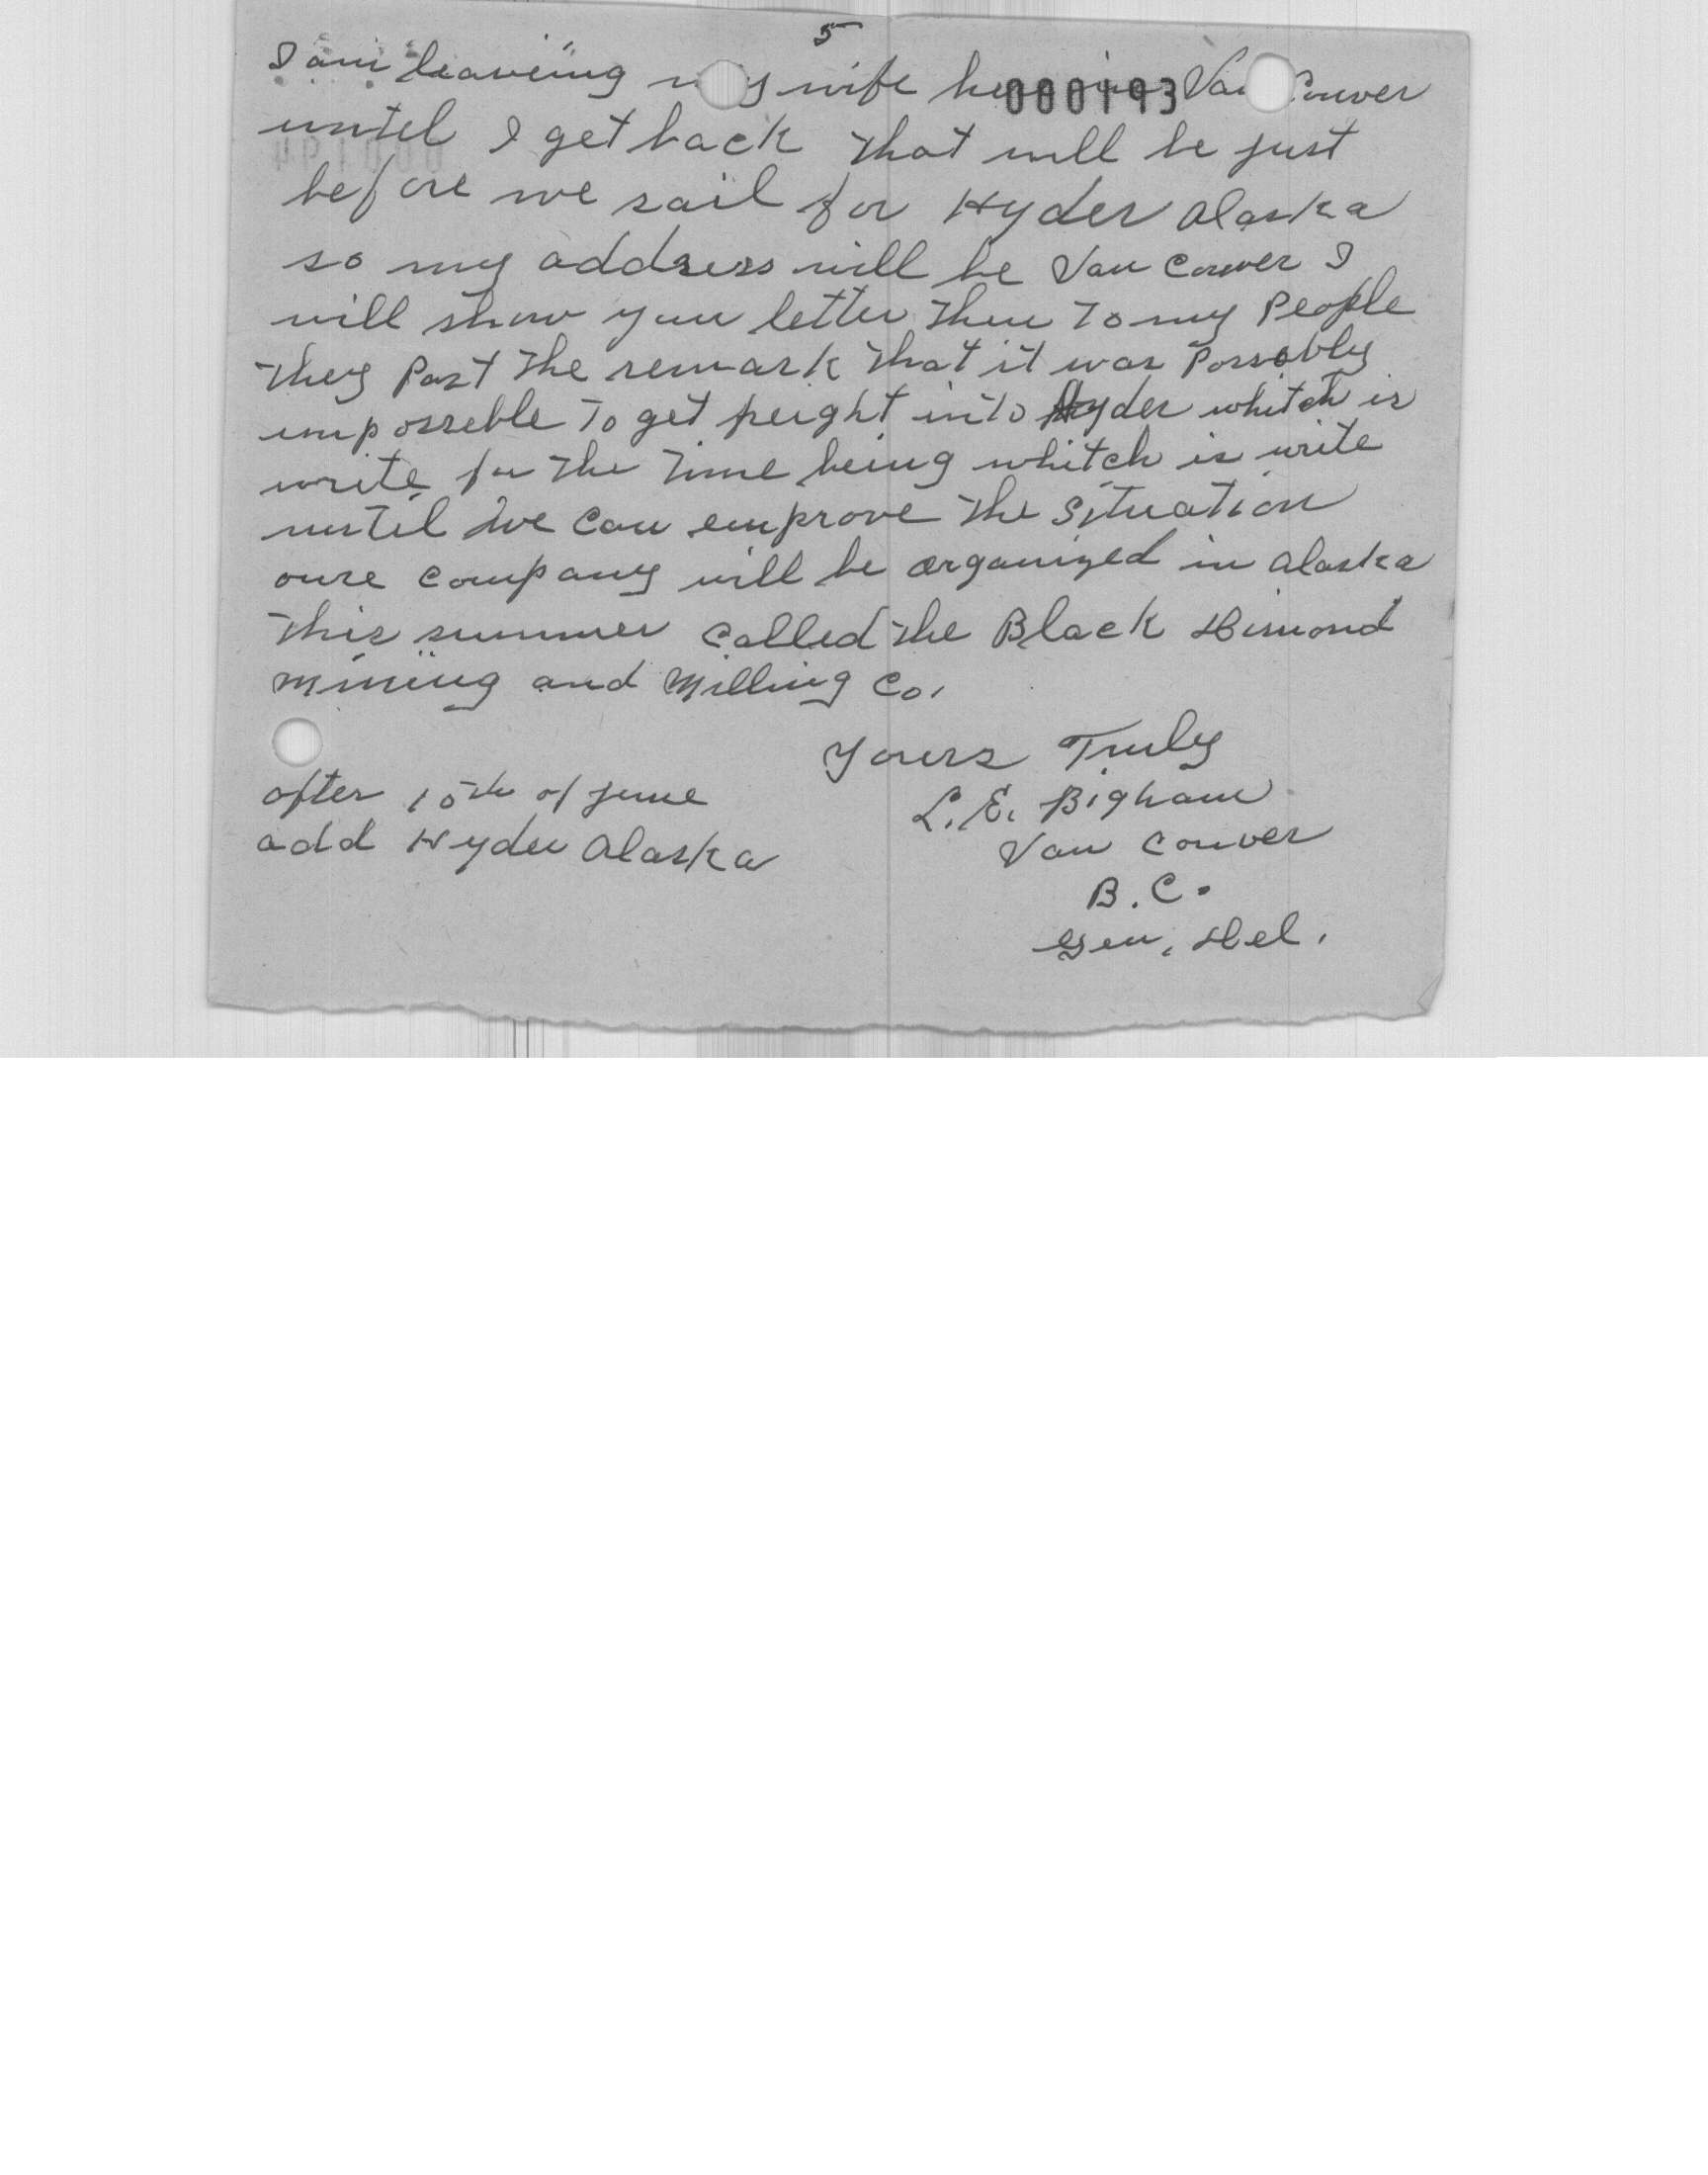 5
I am leaveing my wife here in Van Couver
000193
untel I get back that will be just
before we sail for Hyder Alaska
so my address will be Van Couver I
will show your letter then to my People
they Past the remark that it was Possobly
impossreble to get freight into Hyder whitch is
write for the time being whitch is write
untel we can emprove the situation
oure company will be organized in Alaska
this summer called the Black Dimond
Mining and Milling Co.
Yours Truly
L. E. Bigham
Van Couver
B. C.
Gen. Del.
after 15th of June
add Hyder Alaska